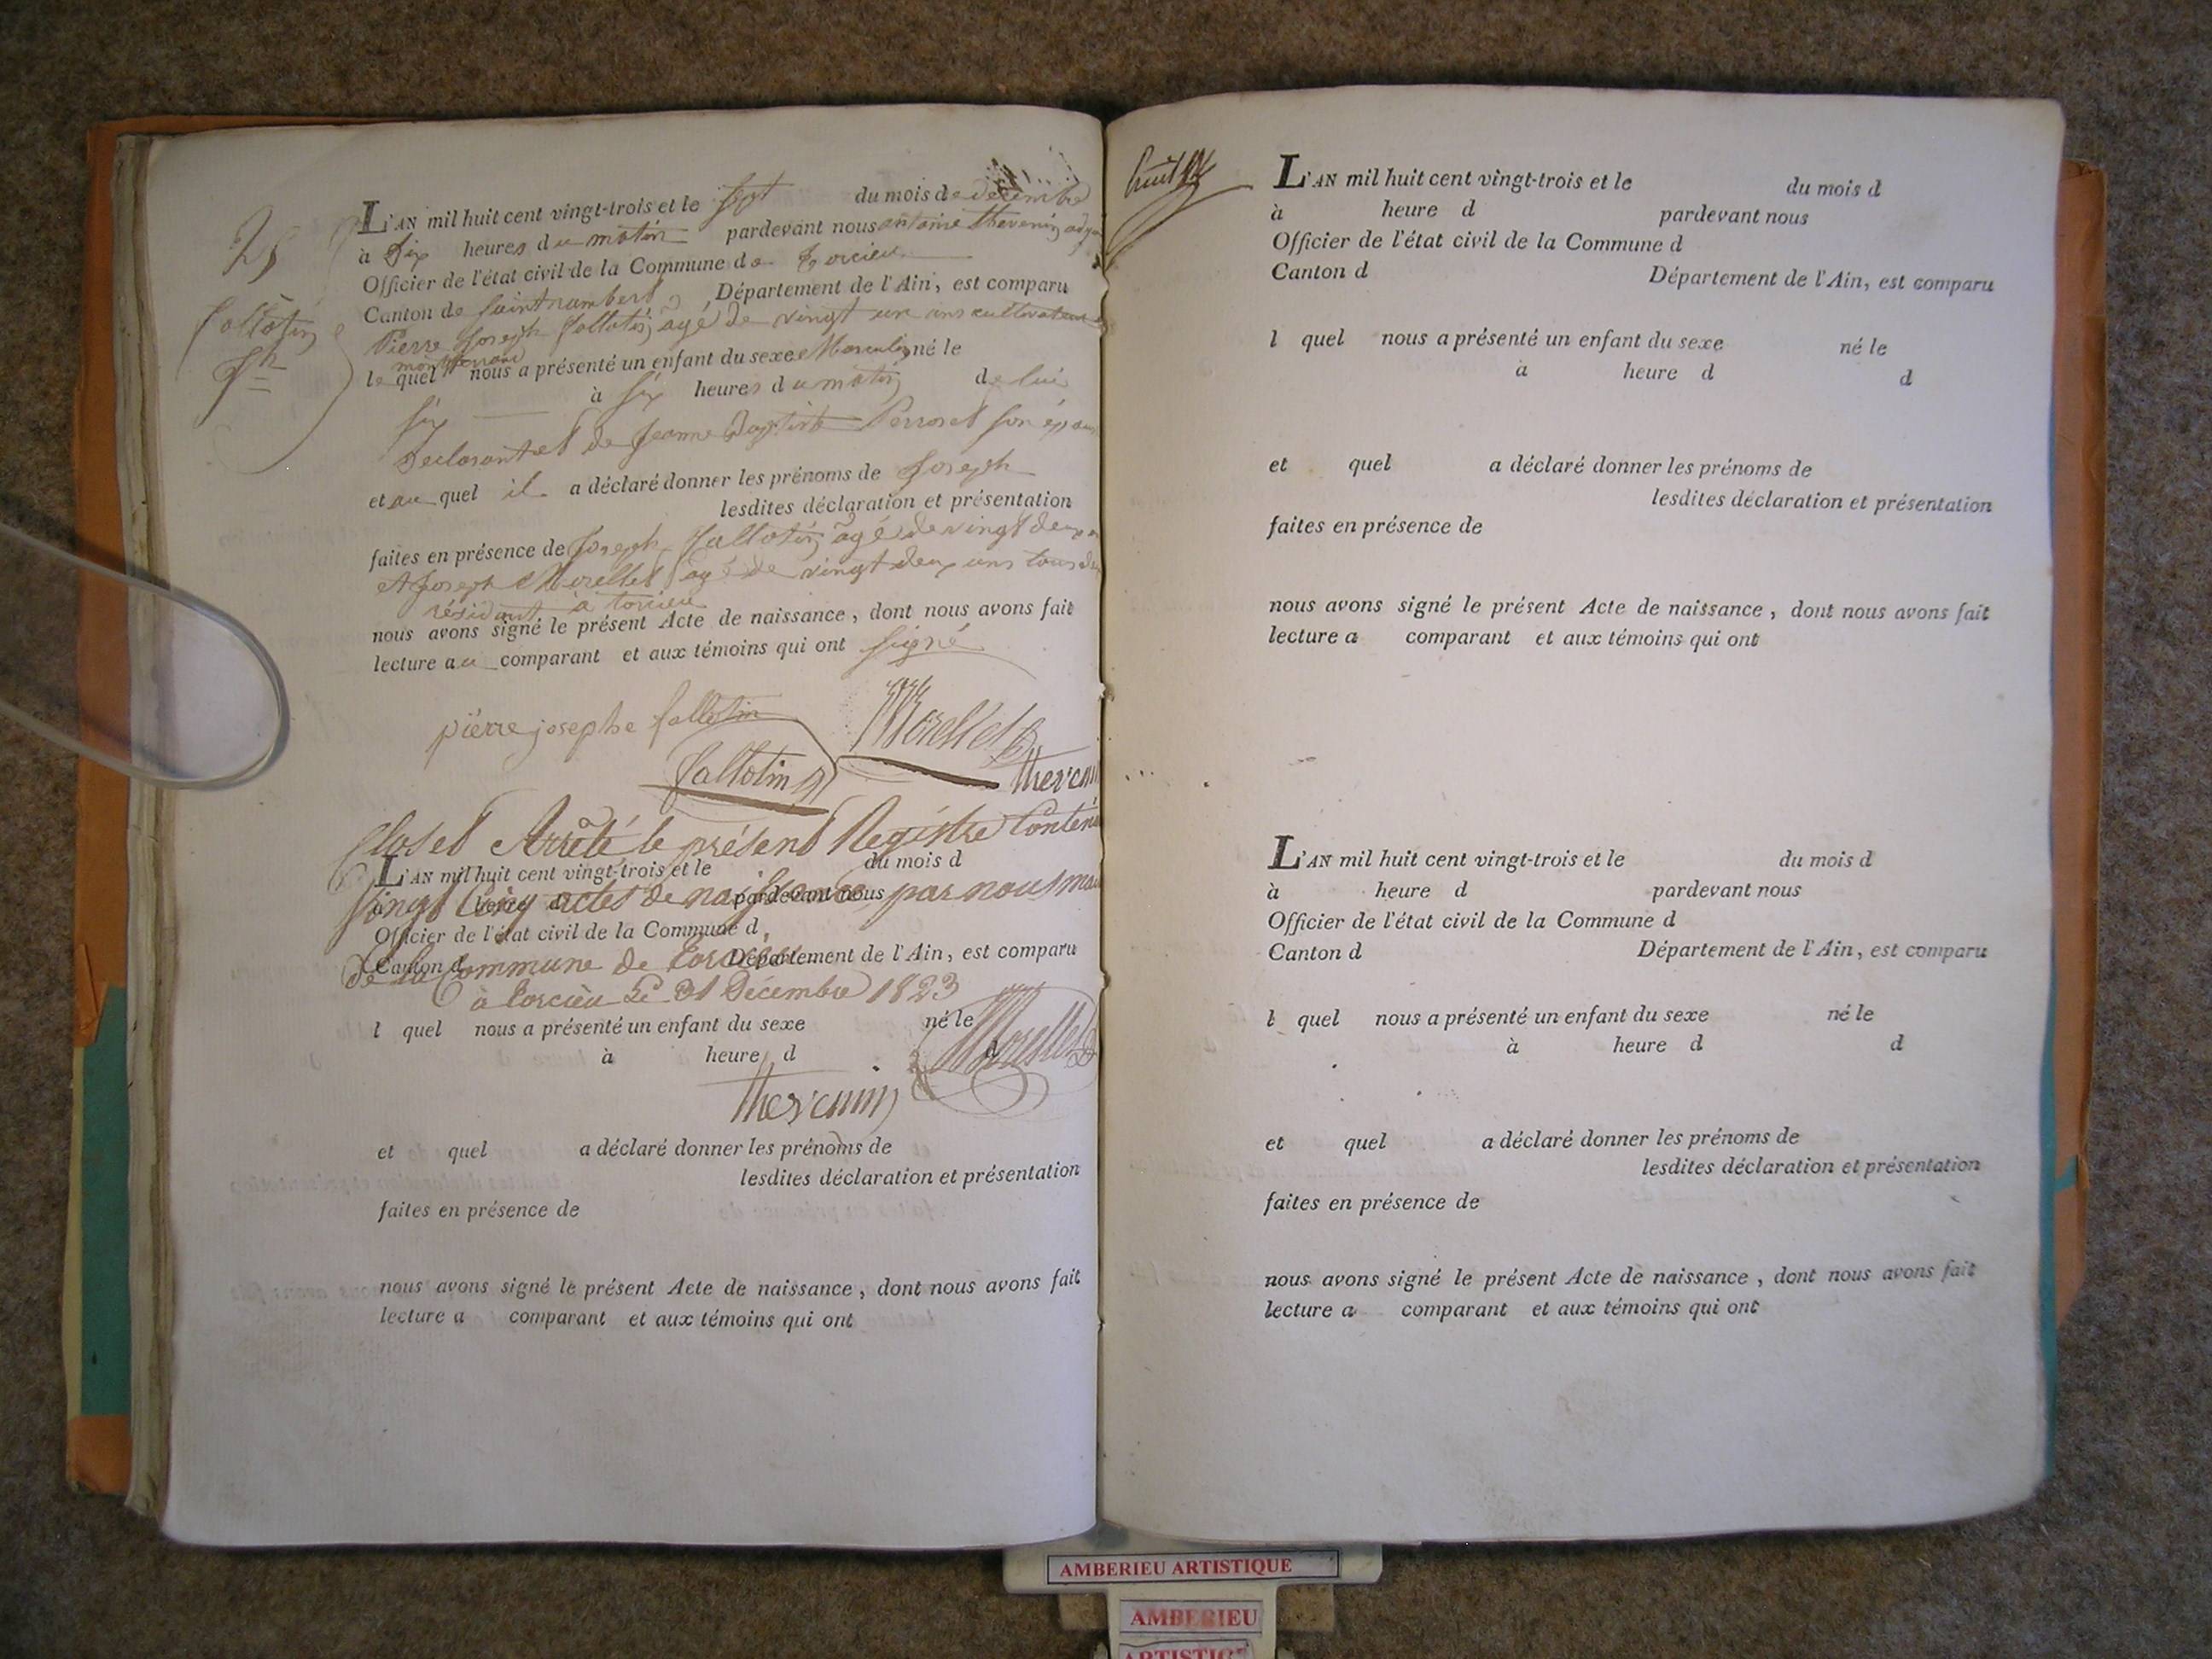 25
fallotin
Jh
L'AN mil huit cent vingt-trois et le sept du mois de décembre
à Six heures du matin pardevant nous antoine thevenin
Officier de l'état civil de la Commune de torcieu
Canton de Saintrambert, Département de l'Ain, est comparu
Pierre Joseph fallotin, agé de vingt un ans cultivateur
montferrand
le quel nous a présenté un enfant du sexe Masculin né le
six à six heures du matin de lui
Declarant et de Jeanne Baptiste Perroset son
et au quel il a déclaré donner les prénoms de Joseph
lesdites déclaration et présentation
faites en présence de Joseph fallotin, agé de vingt deux
et Joseph Morellet agé de vingt deux ans tous
résidant à torcieu
nous avons signé le présent Acte de naissance, dont nous avons fait
lecture au comparant et aux témoins qui ont signé
pierre josephe fallotin
Morellet
fallotin
thevenin
Clos et Arrêté le présent Registre
L'AN mil huit cent vingt-trois et le du mois d
Vingt Cinq actes de naissance par nous
à heure d pardevant nous
Officier de l'état civil de la Commune d
de la Commune de torcieu
Canton d Département de l'Ain, est comparu
à torcieu Le 31 Décembre 1823
l quel nous a présenté un enfant du sexe né le
à heure d d
Morellet
thevenin
et quel a déclaré donner les prénoms de
lesdites déclaration et présentation
faites en présence de
nous avons signé le présent Acte de naissance, dont nous avons fait
lecture a comparant et aux témoins qui ont
huit
L'AN mil huit cent vingt-trois et le du mois d
à heure d pardevant nous
Officier de l'état civil de la Commune d
Canton d Département de l'Ain, est comparu
l quel nous a présenté un enfant du sexe né le
à heure d d
et quel a déclaré donner les prénoms de
lesdites déclaration et présentation
faites en présence de
nous avons signé le présent Acte de naissance, dont nous avons fait
lecture a comparant et aux témoins qui ont
L'AN mil huit cent vingt-trois et le du mois d
à heure d pardevant nous
Officier de l'état civil de la Commune d
Canton d Département de l'Ain, est comparu
l quel nous a présenté un enfant du sexe né le
à heure d d
et quel a déclaré donner les prénoms de
lesdites déclaration et présentation
faites en présence de
nous avons signé le présent Acte de naissance, dont nous avons fait
lecture a comparant et aux témoins qui ont
AMBERIEU ARTISTIQUE
AMBERIEU
ARTISTIQUE